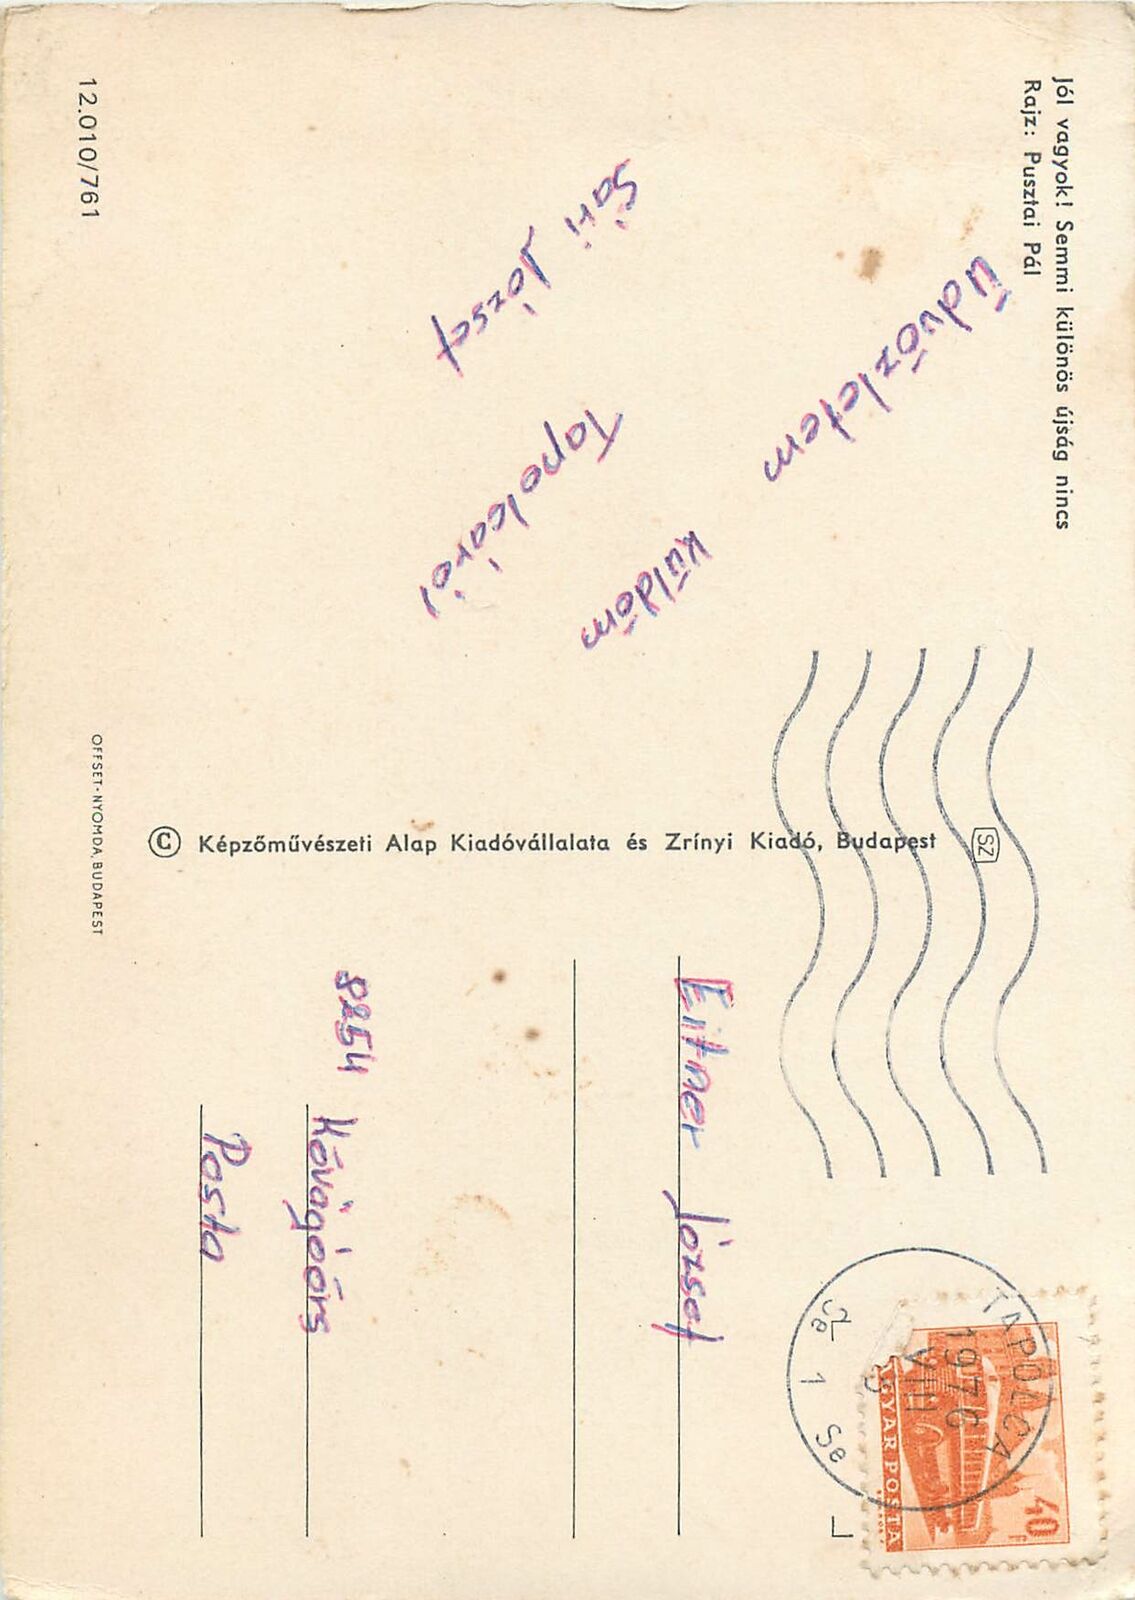 Jól vagyok! Semmi különös újság nincs
Rajz: Pusztai Pál
Üdvözletem
küldöm
Tapolcáról
Sári József
12.010/761
© Képzőművészeti Alap Kiadóvállalata és Zrínyi Kiadó, Budapest
SZ
OFFSET-NYOMDA, BUDAPEST
TAPOLCA
1976
VIII
1
40
MAGYAR POSTA
Eitner József
8254 Kővágóörs
Posta